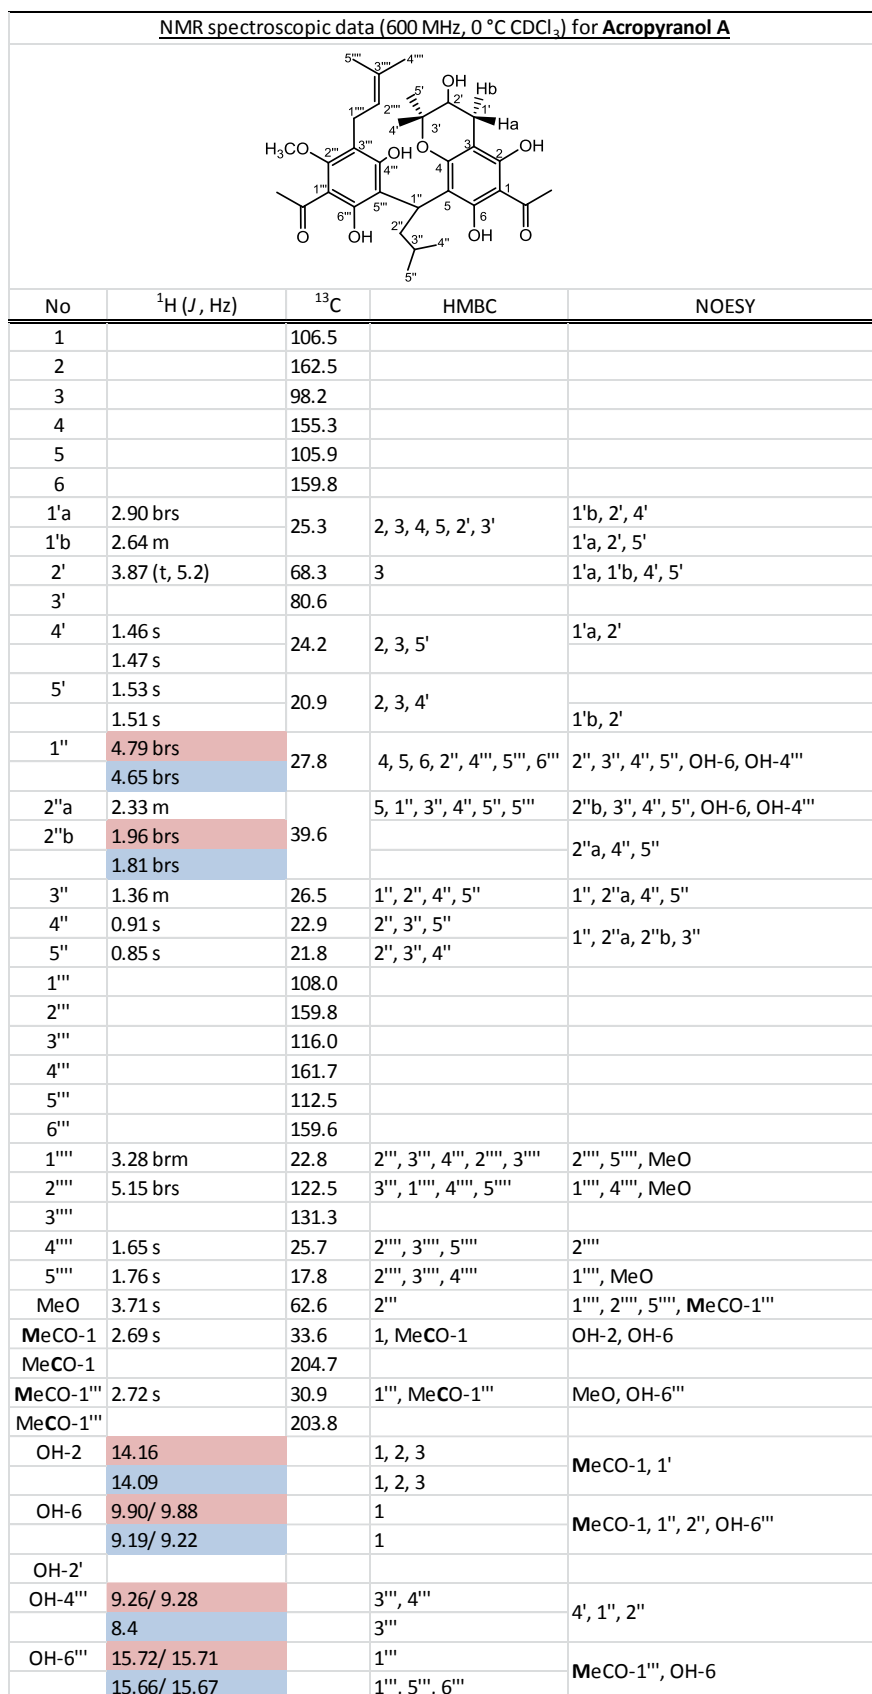 NMR spectroscopic data (600 MHz, 0 °C CDCl3) for Acropyranol A
5'''' 3'''' 4''''
1'''' 2''''
5' OH Hb
2' 1'
4' 3' Ha
H3CO 2''' 3''' OH O 3 2 OH
4''' 4
1''' 5''' 1'' 5 1
6''' 6
O OH 2'' OH O
3'' 4''
5''
No 1H (J, Hz) 13C HMBC NOESY
1 106.5
2 162.5
3 98.2
4 155.3
5 105.9
6 159.8
1'a 2.90 brs 25.3 2, 3, 4, 5, 2', 3' 1'b, 2', 4'
1'b 2.64 m 1'a, 2', 5'
2' 3.87 (t, 5.2) 68.3 3 1'a, 1'b, 4', 5'
3' 80.6
4' 1.46 s 24.2 2, 3, 5' 1'a, 2'
1.47 s
5' 1.53 s 20.9 2, 3, 4'
1.51 s 1'b, 2'
1'' 4.79 brs 27.8 4, 5, 6, 2'', 4''', 5''', 6''' 2'', 3'', 4'', 5'', OH-6, OH-4'''
4.65 brs
2''a 2.33 m 39.6 5, 1'', 3'', 4'', 5'', 5''' 2''b, 3'', 4'', 5'', OH-6, OH-4'''
2''b 1.96 brs 2''a, 4'', 5''
1.81 brs
3'' 1.36 m 26.5 1'', 2'', 4'', 5'' 1'', 2''a, 4'', 5''
4'' 0.91 s 22.9 2'', 3'', 5'' 1'', 2''a, 2''b, 3''
5'' 0.85 s 21.8 2'', 3'', 4''
1''' 108.0
2''' 159.8
3''' 116.0
4''' 161.7
5''' 112.5
6''' 159.6
1'''' 3.28 brm 22.8 2''', 3''', 4''', 2'''', 3'''' 2'''', 5'''', MeO
2'''' 5.15 brs 122.5 3''', 1'''', 4'''', 5'''' 1'''', 4'''', MeO
3'''' 131.3
4'''' 1.65 s 25.7 2'''', 3'''', 5'''' 2''''
5'''' 1.76 s 17.8 2'''', 3'''', 4'''' 1'''', MeO
MeO 3.71 s 62.6 2''' 1'''', 2'''', 5'''', MeCO-1'''
MeCO-1 2.69 s 33.6 1, MeCO-1 OH-2, OH-6
MeCO-1 204.7
MeCO-1''' 2.72 s 30.9 1''', MeCO-1''' MeO, OH-6'''
MeCO-1''' 203.8
OH-2 14.16 1, 2, 3 MeCO-1, 1'
14.09 1, 2, 3
OH-6 9.90/ 9.88 1 MeCO-1, 1'', 2'', OH-6'''
9.19/ 9.22 1
OH-2'
OH-4''' 9.26/ 9.28 3''', 4''' 4', 1'', 2''
8.4 3'''
OH-6''' 15.72/ 15.71 1''' MeCO-1''', OH-6
15.66/ 15.67 1''', 5''', 6'''